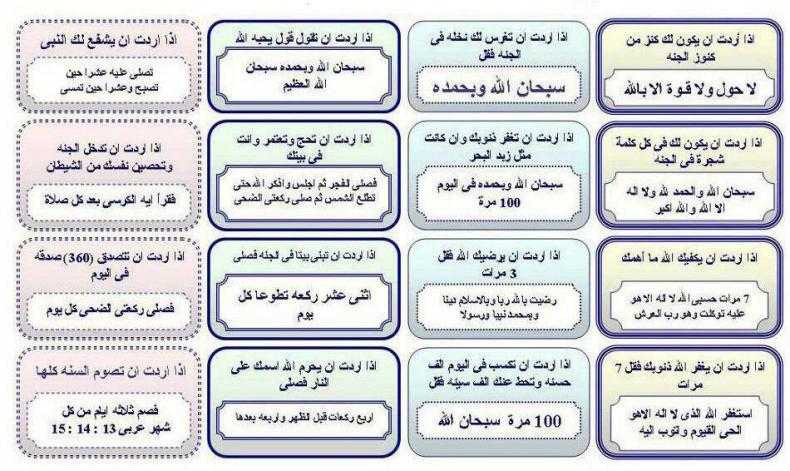 اذا أردت ان يكون لك كنز من
كنوز الجنه
لا حول ولا قوة الا بالله
اذا اردت ان تغرس لك نخله فى
الجنه فقل
سبحان الله وبحمده
اذا اردت ان تقول قول يحبه الله
سبحان الله وبحمده سبحان
الله العظيم
اذا اردت ان يشفع لك النبى
تصلى عليه عشرا حين
تصبح وعشرا حين تمسى
اذا اردت ان يكون لك فى كل كلمة
شجرة فى الجنه
سبحان الله والحمد لله ولا اله
الا الله والله اكبر
اذا اردت ان تغفر ذنوبك وان كانت
مثل زبد البحر
سبحان الله وبحمده فى اليوم
100 مرة
اذا اردت ان تحج وتعتمر وانت
فى بيتك
فصلى الفجر ثم اجلس واذكر الله حتى
تطلع الشمس ثم صلى ركعتى الضحى
اذا اردت ان تدخل الجنه
وتحصين نفسك من الشيطان
فقرأ ايه الكرسى بعد كل صلاة
اذا اردت ان يكفيك الله ما أهمك
7 مرات حسبى الله لا اله الاهو
عليه توكلت وهو رب العرش
اذا اردت ان يرضيك الله فقل
3 مرات
رضيت بالله ربا وبالاسلام دينا
وبمحمد نبيا ورسولا
اذا اردت ان تبنى بيتا فى الجنه فصلى
اثنى عشر ركعه تطوعا كل
يوم
اذا اردت ان تتصدق (360) صدقه
فى اليوم
فصلى ركعتى الضحى كل يوم
اذا اردت ان يغفر الله ذنوبك فقل 7
مرات
استغفر الله الذى لا اله الاهو
الحى القيوم واتوب اليه
اذا اردت ان تكسب فى اليوم الف
حسنه وتحط عنك الف سيئه فقل
100 مرة سبحان الله
اذا اردت ان يحرم الله اسمك على
النار فصلى
اربع ركعات قبل الظهر واربعه بعدها
اذا اردت ان تصوم السنه كلها
فصم ثلاثه ايام من كل
شهر عربى 13 : 14 : 15